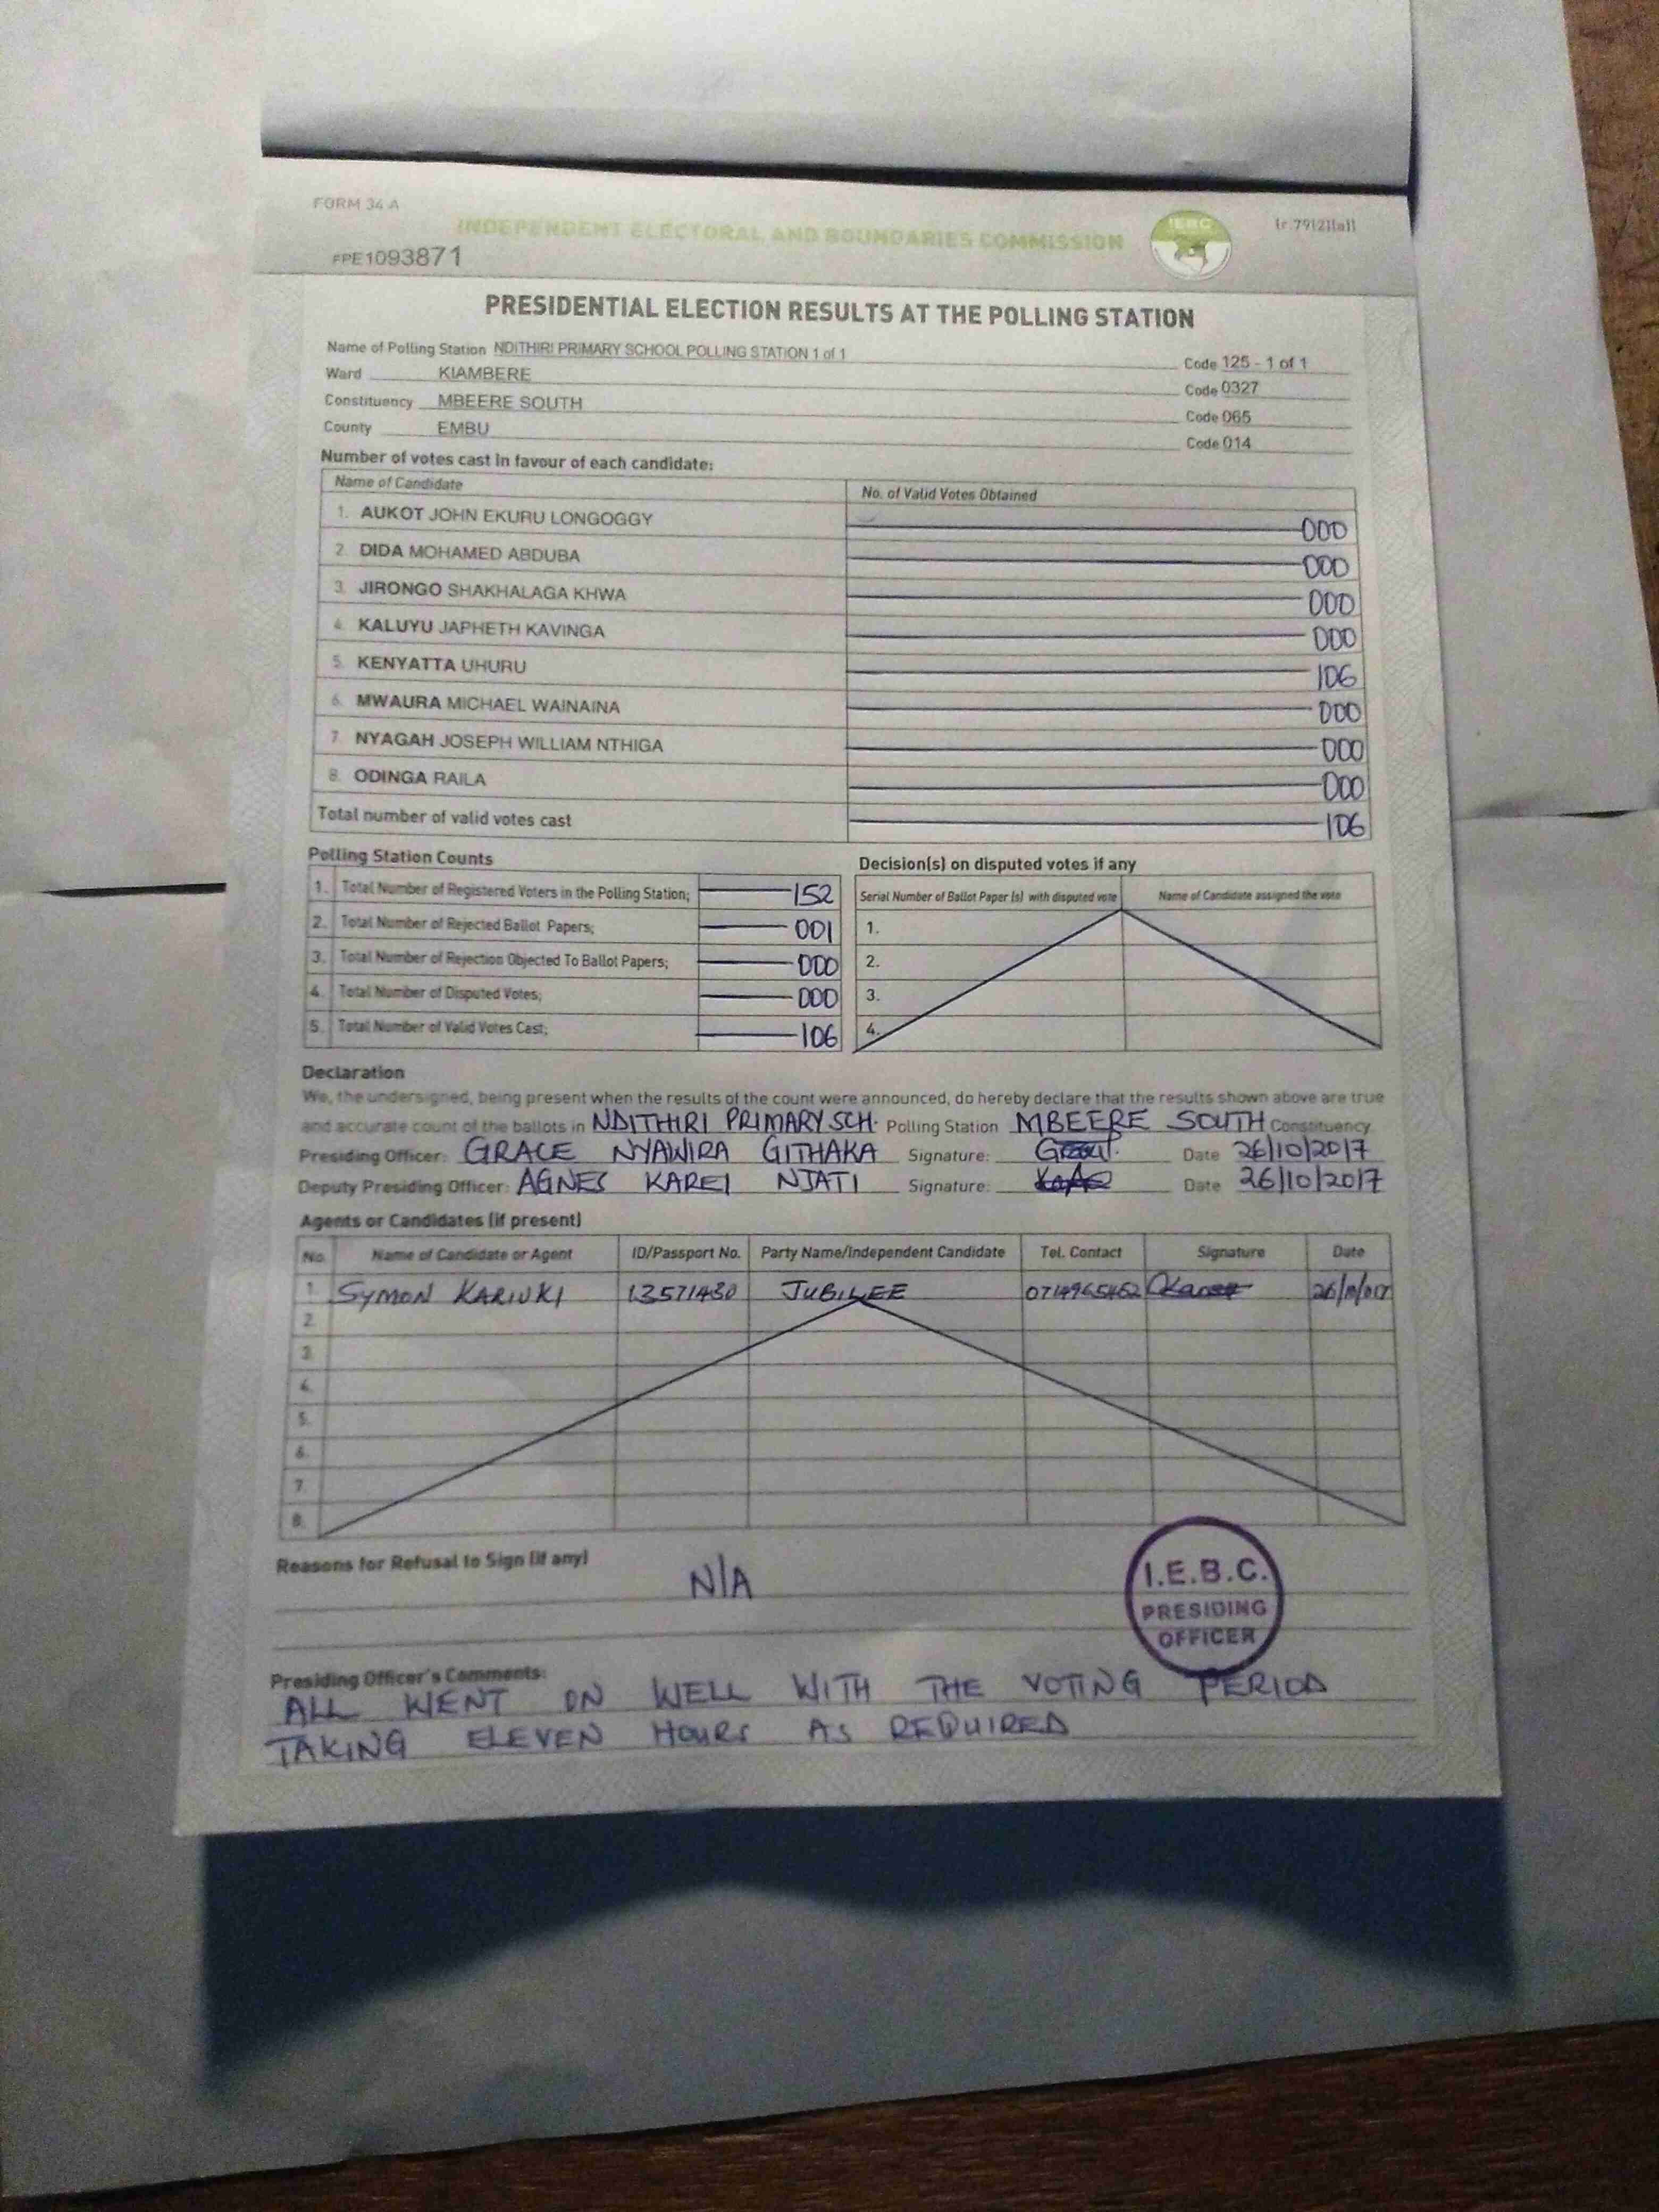 FORM 34 A
INDEPENDENT ELECTORAL AND BOUNDARIES COMMISSION
IEBC
FPE1093871
PRESIDENTIAL ELECTION RESULTS AT THE POLLING STATION
Name of Polling Station NDITHIRI PRIMARY SCHOOL POLLING STATION 1 of 1 Code 125 - 1 of 1
Ward KIAMBERE Code 0327
Constituency MBEERE SOUTH Code 065
County EMBU Code 014
Number of votes cast in favour of each candidate:
Name of Candidate No. of Valid Votes Obtained
1. AUKOT JOHN EKURU LONGOGGY 000
2. DIDA MOHAMED ABDUBA 000
3. JIRONGO SHAKHALAGA KHWA 000
4. KALUYU JAPHETH KAVINGA 000
5. KENYATTA UHURU 106
6. MWAURA MICHAEL WAINAINA 000
7. NYAGAH JOSEPH WILLIAM NTHIGA 000
8. ODINGA RAILA 000
Total number of valid votes cast 106
Polling Station Counts
1. Total Number of Registered Voters in the Polling Station; 152
2. Total Number of Rejected Ballot Papers; 001
3. Total Number of Rejection Objected To Ballot Papers; 000
4. Total Number of Disputed Votes; 000
5. Total Number of Valid Votes Cast; 106
Decision(s) on disputed votes if any
Serial Number of Ballot Paper (s) with disputed vote Name of Candidate assigned the vote
1.
2.
3.
4.
Declaration
We, the undersigned, being present when the results of the count were announced, do hereby declare that the results shown above are true
and accurate count of the ballots in NDITHIRI PRIMARY SCH. Polling Station MBEERE SOUTH Constituency
Presiding Officer: GRACE NYAWIRA GITHAKA Signature: Date 26/10/2017
Deputy Presiding Officer: AGNES KAREI NJATI Signature: Date 26/10/2017
Agents or Candidates (if present)
No. Name of Candidate or Agent ID/Passport No. Party Name/Independent Candidate Tel. Contact Signature Date
1 SYMON KARIUKI 13571430 JUBILEE
2.
3.
4.
5.
6.
7.
8.
Reasons for Refusal to Sign (if any)
N/A
I.E.B.C.
PRESIDING
OFFICER
Presiding Officer's Comments:
ALL WENT ON WELL WITH THE VOTING PERIOD
TAKING ELEVEN HOURS AS REQUIRED